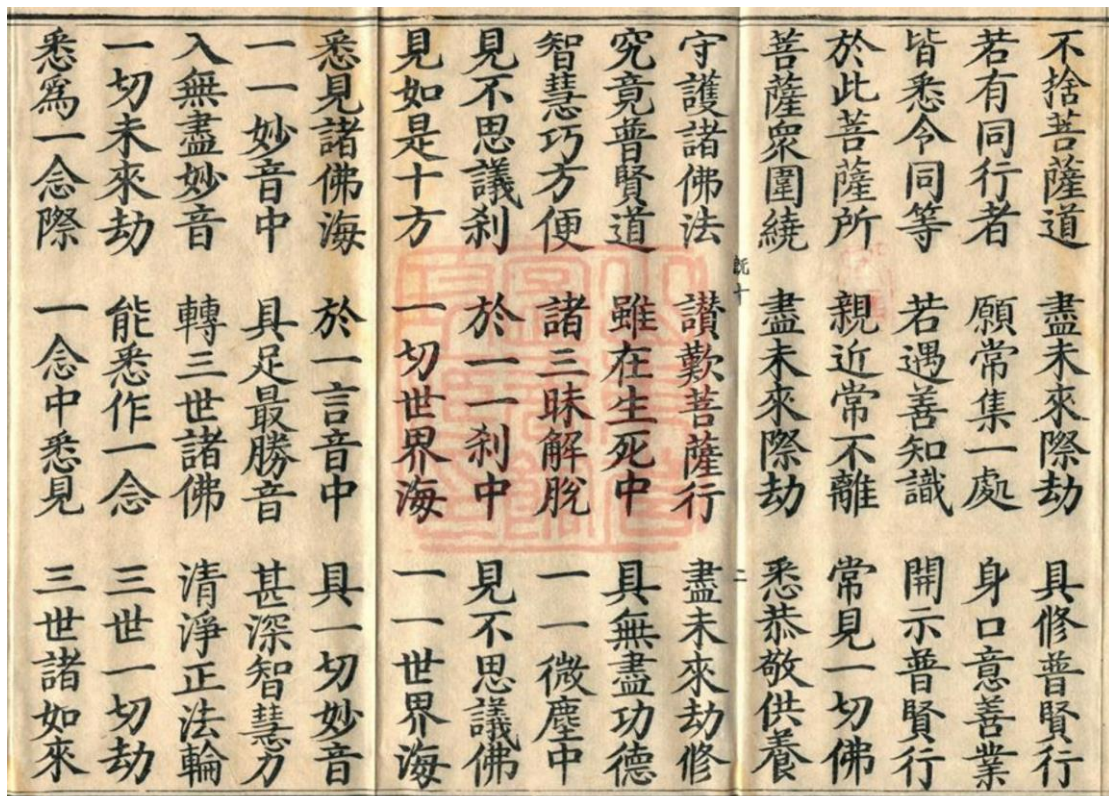 不捨菩薩道 盡未來際劫 具修普賢行
若有同行者 願常集一處 身口意善業
皆悉令同等 若遇善知識 開示普賢行
於此菩薩所 親近常不離 常見一切佛
菩薩眾圍繞 盡未來際劫 悉恭敬供養
守護諸佛法 讚歎菩薩行 盡未來劫修
究竟普賢道 雖在生死中 具無盡功德
智慧巧方便 諸三昧解脫 一一微塵中
見不思議剎 於一一剎中 見不思議佛
見如是十方 一切世界海 一一世界海
悉見諸佛海 於一言音中 具一切妙音
一一妙音中 具足最勝音 甚深智慧力
入無盡妙音 轉三世諸佛 清淨正法輪
一切未來劫 能悉作一念 三世一切劫
悉爲一念際 一念中悉見 三世諸如來